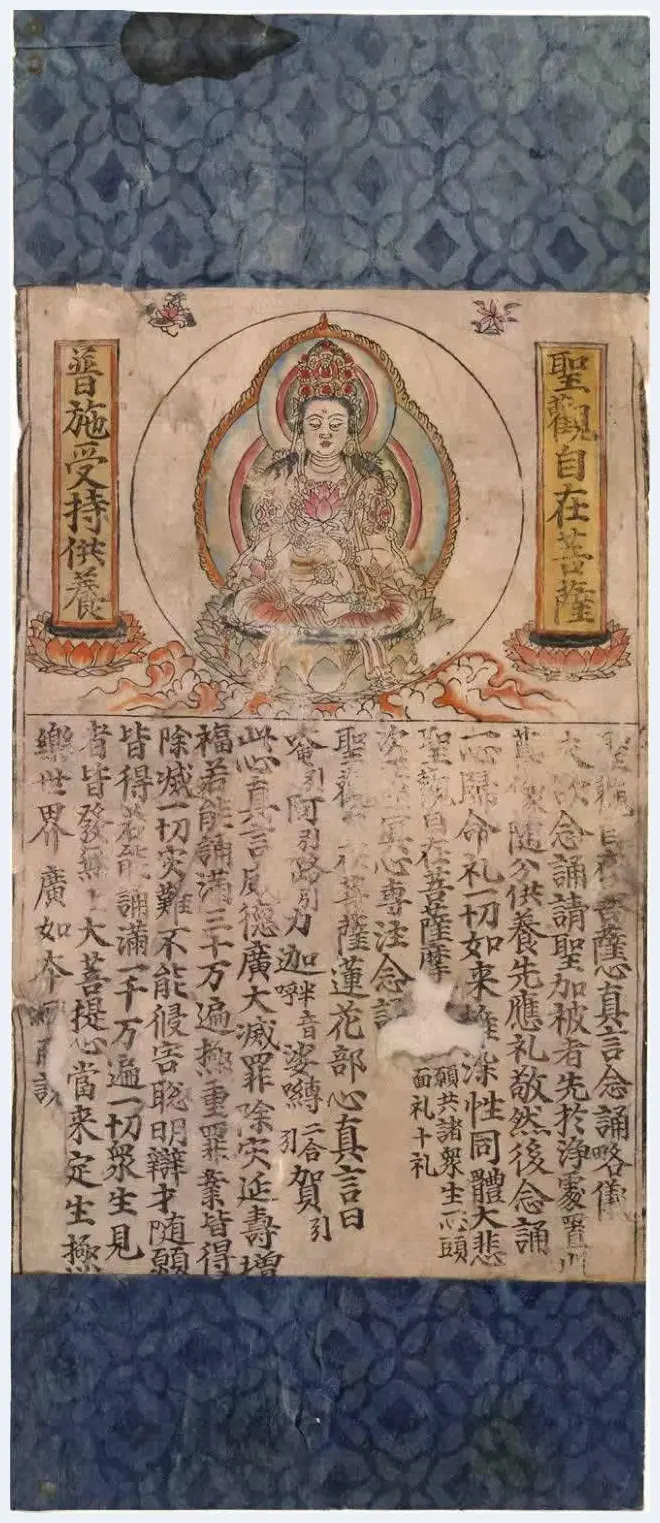 聖觀自在菩薩
普施受持供養
聖觀自在菩薩心真言念誦略儀
夫欲念誦請聖加被者先於淨處置此
尊像隨分供養先應礼敬然後念誦
一心歸命礼一切如来離染性同體大悲
聖觀自在菩薩摩
願共諸衆生頭
面礼十礼
冥心專注念誦
聖觀自在菩薩蓮花部心真言曰
唵引阿引路引力迦半音呼娑嚩二合引賀引
此心真言威德廣大滅罪除灾延壽增
福若能誦滿三十万遍極重罪業皆得
除滅一切灾難不能侵害聡明辯才随願
皆得若能誦滿一千万遍一切衆生見
者皆發無上大菩提心當来定生極
樂世界廣如本經所説